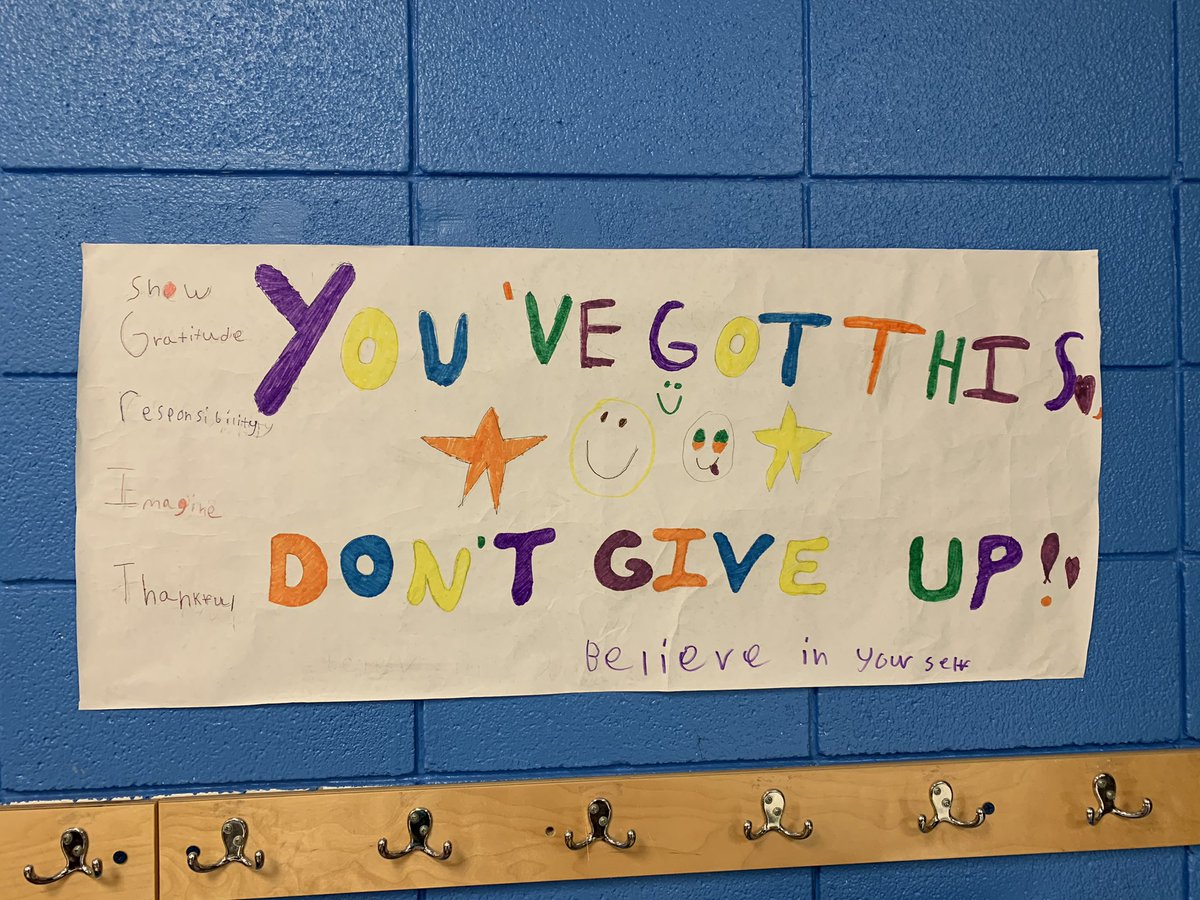 Show
Gratitude
responsibility
Imagine
Thankful
YOU'VE GOT THIS
DON'T GIVE UP!!
Believe in your self